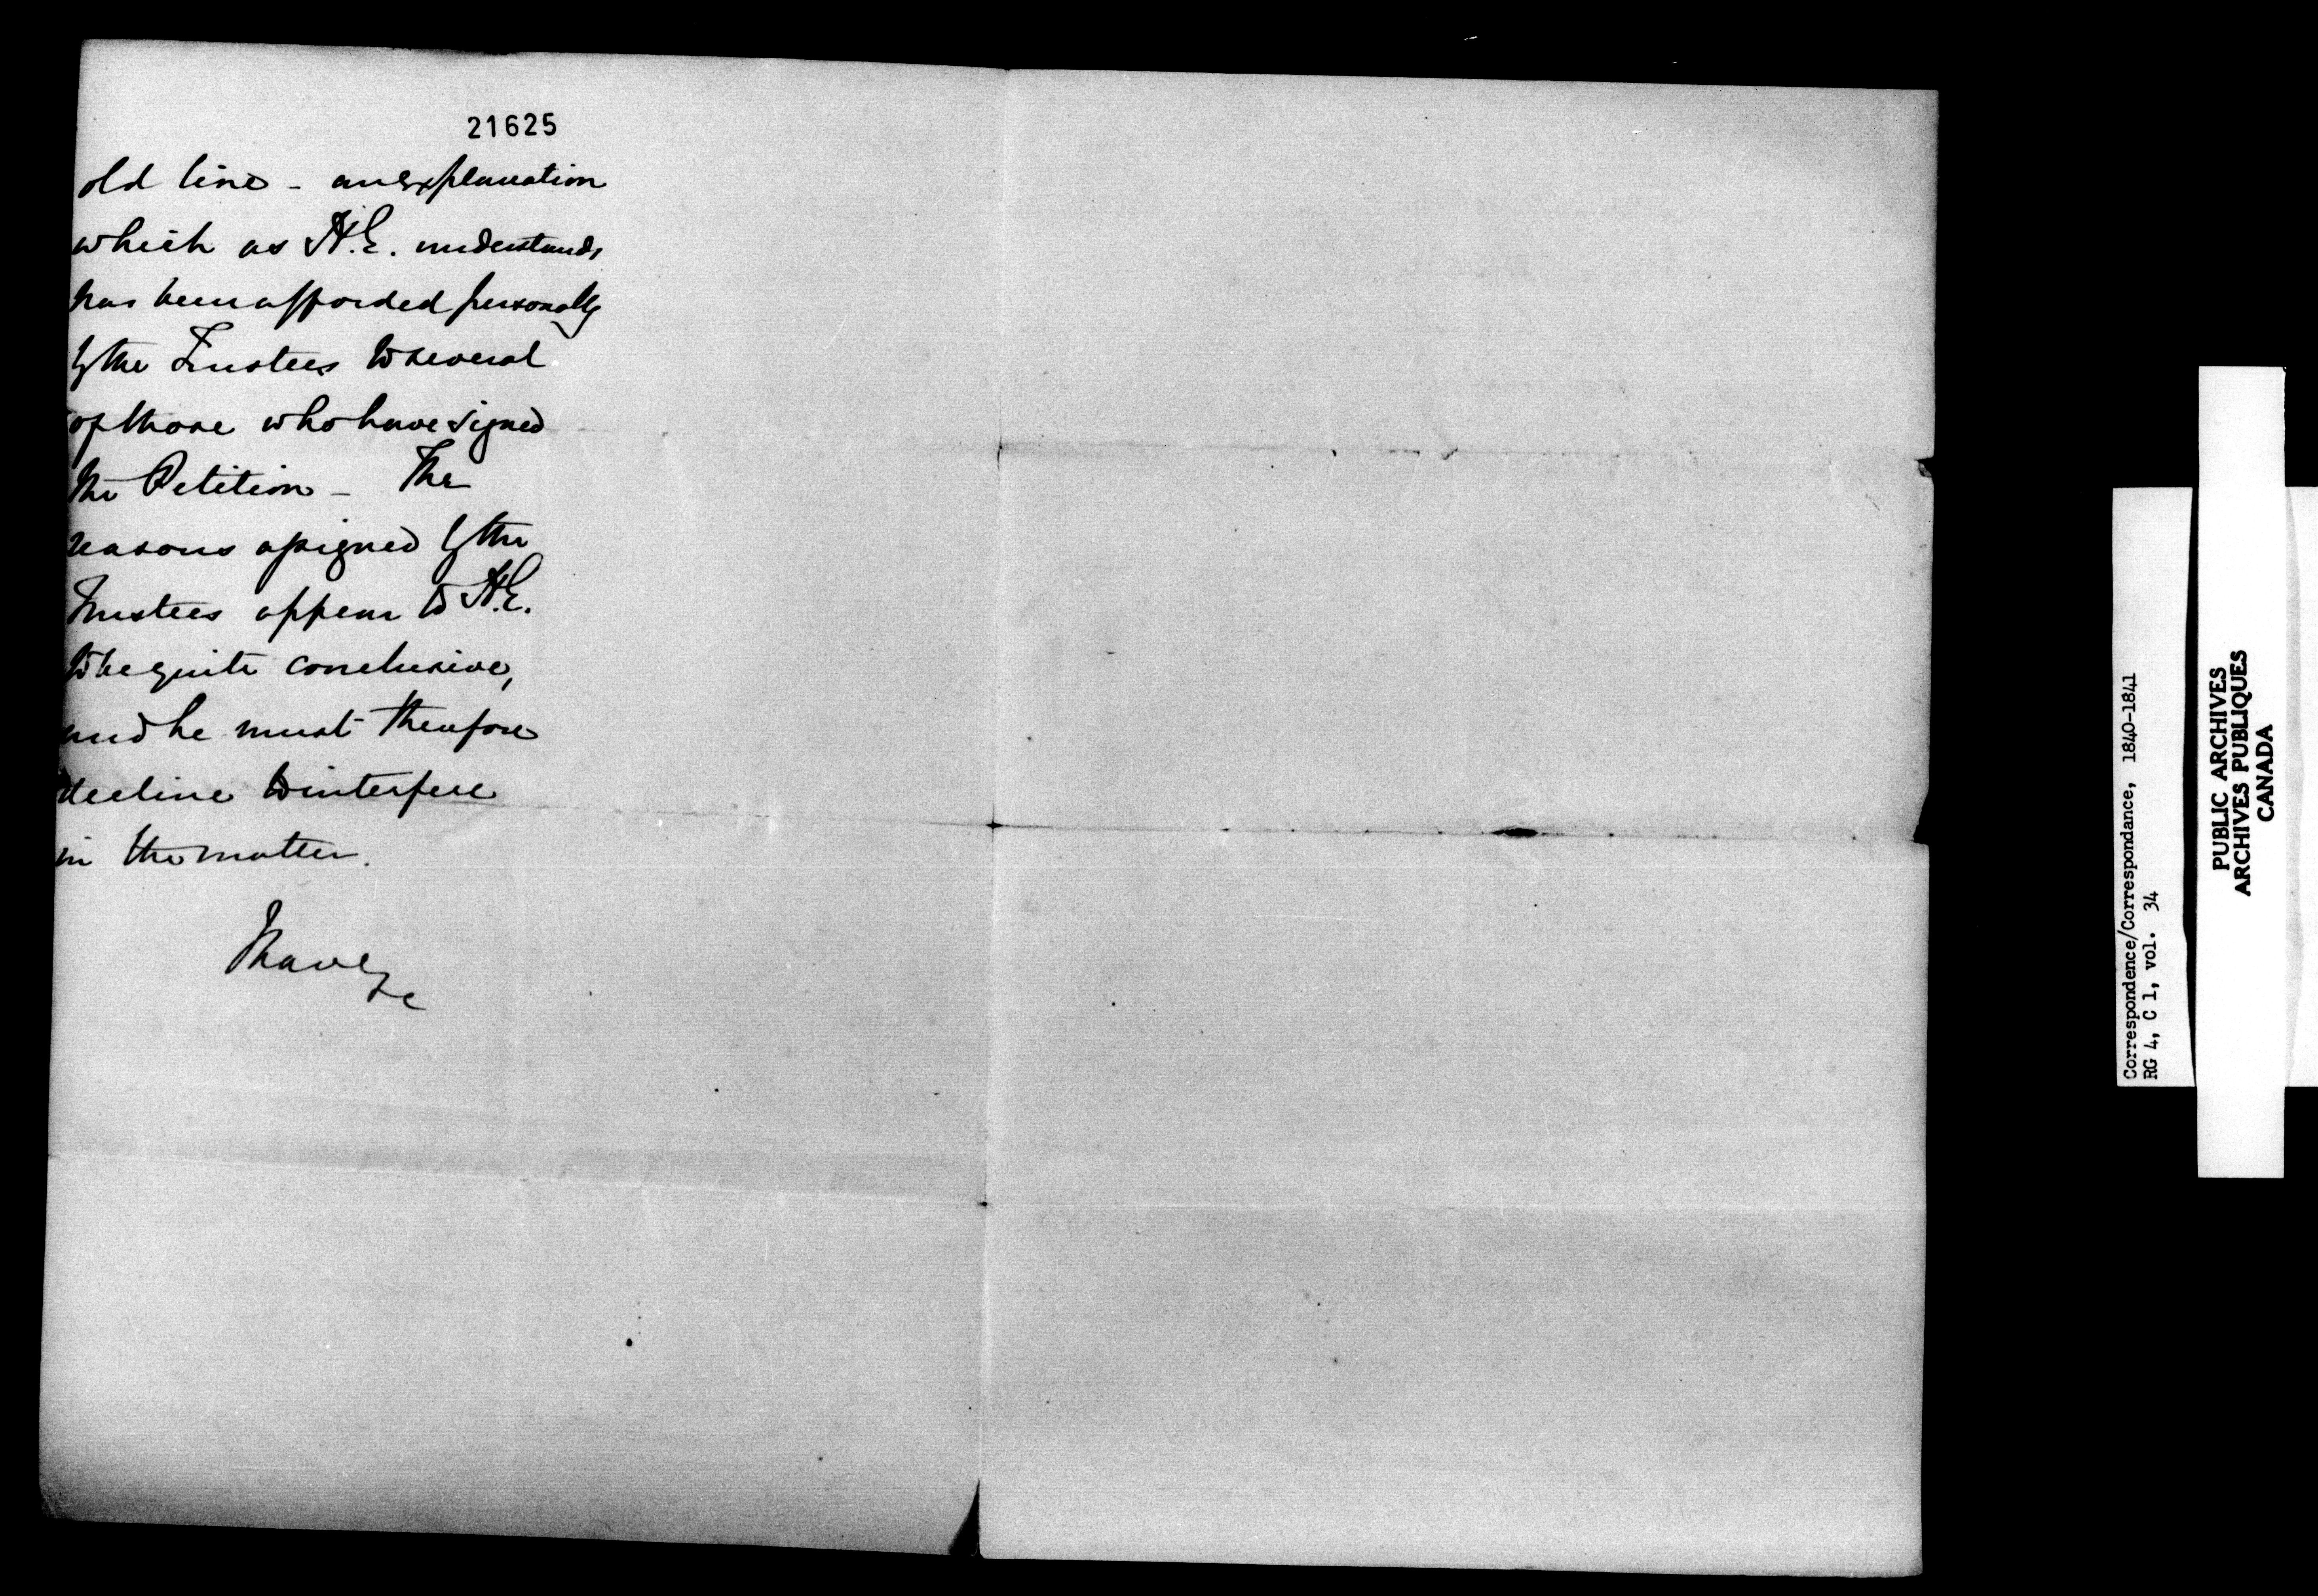 21625
old line - an explanation
which as H.E. understands
has been afforded personally
by the Trustees to several
of those who have signed
the Petition - The
reasons assigned by the
Trustees appear to H.E.
to be quite conclusive,
and he must therefore
decline to interfere
in the matter.
I have
&c
Correspondence/Correspondance, 1840-1841
RG 4, C 1, vol. 34
PUBLIC ARCHIVES
ARCHIVES PUBLIQUES
CANADA